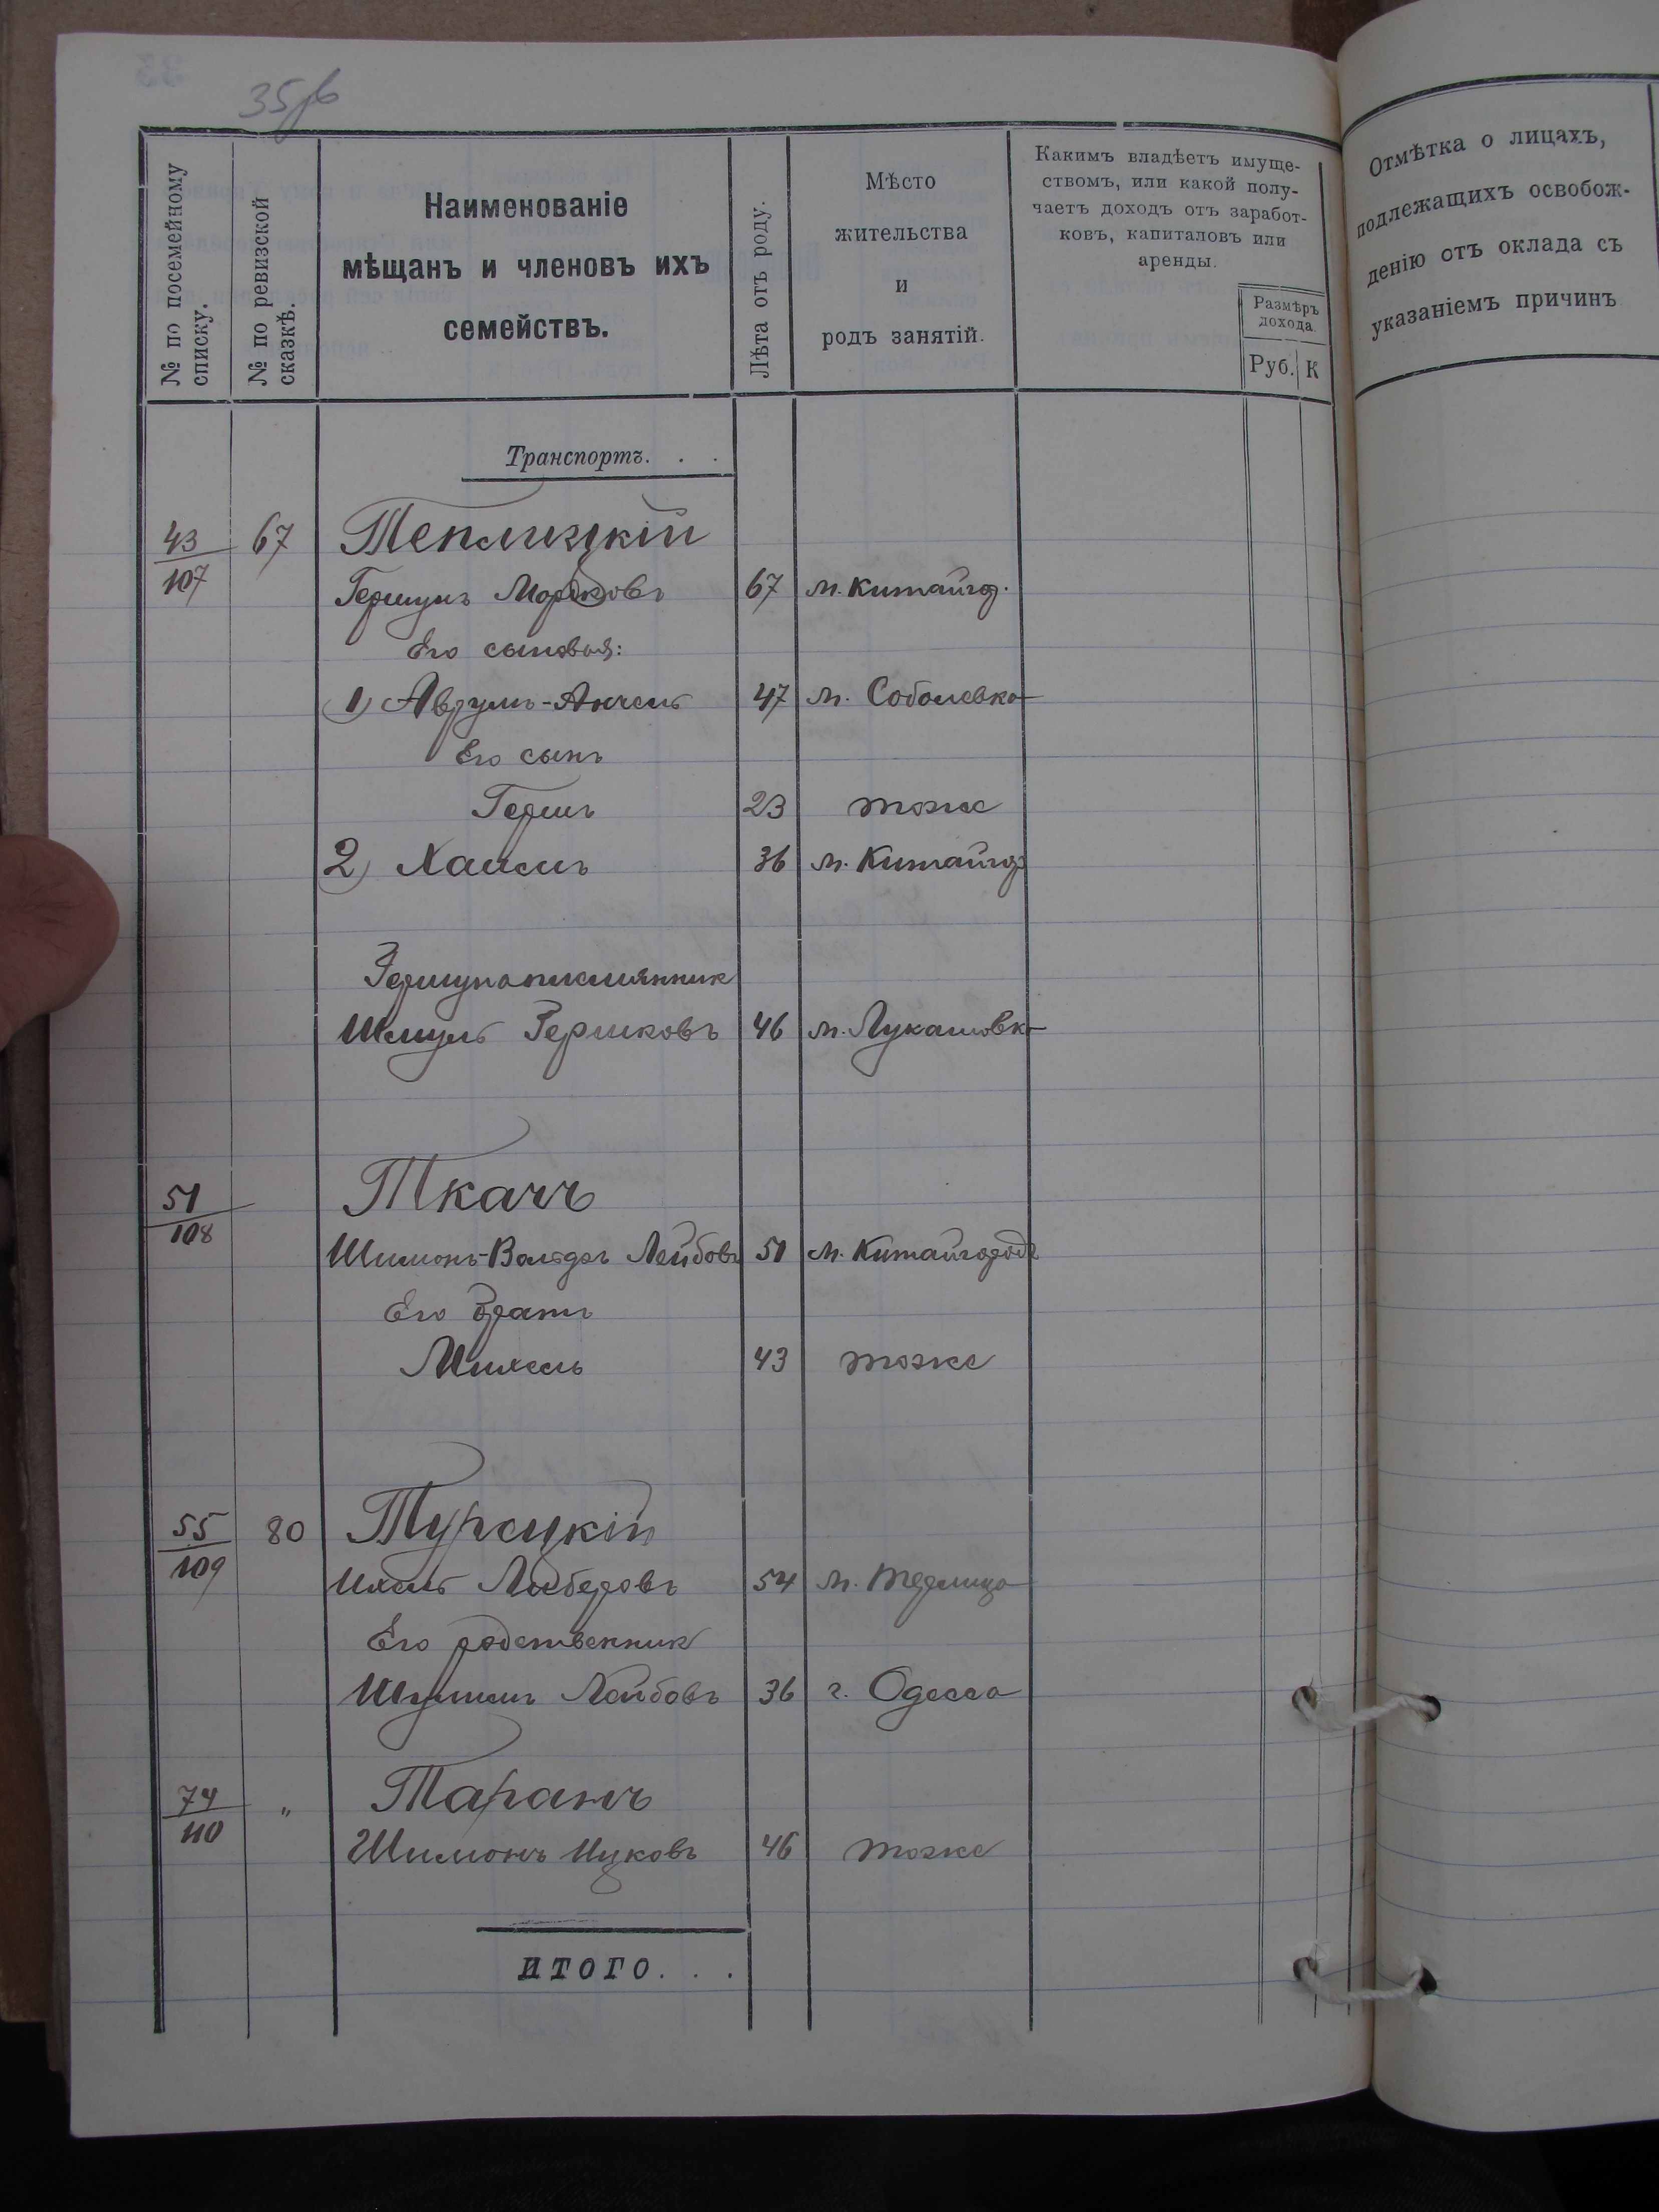 35об
№ по посемейному списку.
№ по ревизской сказкѣ.
Наименованіе
мѣщанъ и членовъ ихъ
семействъ.
Лѣта отъ роду.
Мѣсто
жительства
и
родъ занятій.
Какимъ владѣетъ имуще-
ствомъ, или какой полу-
чаетъ доходъ отъ заработ-
ковъ, капиталовъ или
аренды.
Размѣръ
дохода.
Руб. К
Отмѣтка о лицахъ,
подлежащихъ освобож-
денію отъ оклада съ
указаніемъ причинъ
Транспортъ. . .
43 67 Теплицкій
107 Гершунъ Мордковъ 67 м. Китайгор.
Его сыновья:
1) Аврумъ-Анчель 47 м. Соболевка
Его сынъ
Гершъ 23 тоже
2) Хаимъ 36 м. Китайгор
Гершуна племянник
Шмуль Гершковъ 46 м. Лукашовка
51 Ткачъ
108
Шимонъ-Вольфъ Лейбовъ 51 м. Китайгородъ
Его братъ
Михель 43 тоже
55 80 Турецкій
109 Ихель Лейберовъ 54 м. Терлица
Его родственник
Шулимъ Лейбовъ 36 г. Одесса
74 " Таранъ
110 Шимонъ Ицковъ 46 тоже
ИТОГО. . .